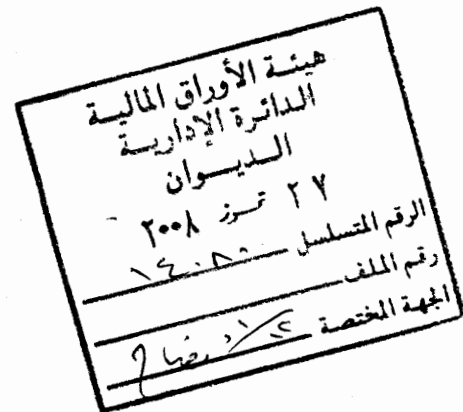 هيئة الأوراق المالية
الدائرة الإدارية
الديوان
٢٧ تموز ٢٠٠٨
الرقم المتسلسل ١٤٠٨٠
رقم الملف
الجهة المختصة